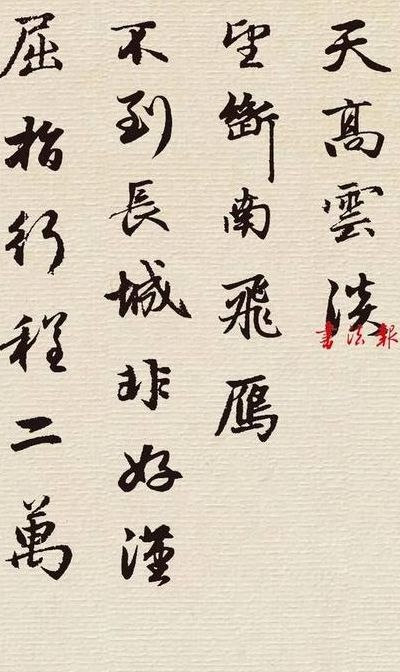 天高雲淡
望斷南飛雁
不到長城非好漢
屈指行程二萬
書法報